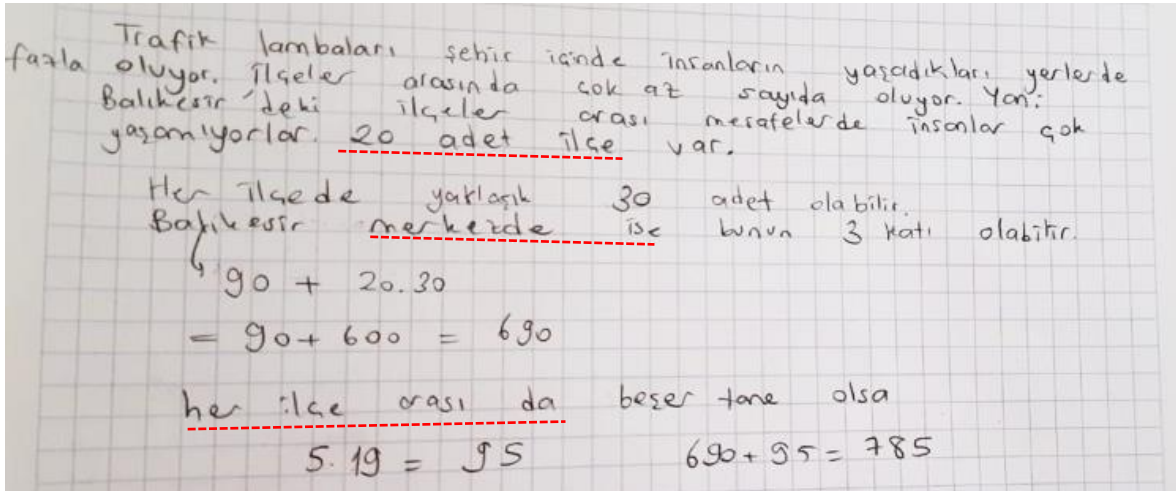 Trafik lambaları şehir içinde insanların yaşadıkları yerlerde
fazla oluyor. İlçeler arasında çok az sayıda oluyor. Yani
Balıkesir'deki ilçeler arası mesafelerde insanlar çok
yaşamıyorlar. 20 adet ilçe var.
Her ilçede yaklaşık 30 adet olabilir.
Balıkesir merkezde ise bunun 3 katı olabilir.
90 + 20.30
= 90 + 600 = 690
her ilçe arası da beşer tane olsa
5.19 = 95 690 + 95 = 785